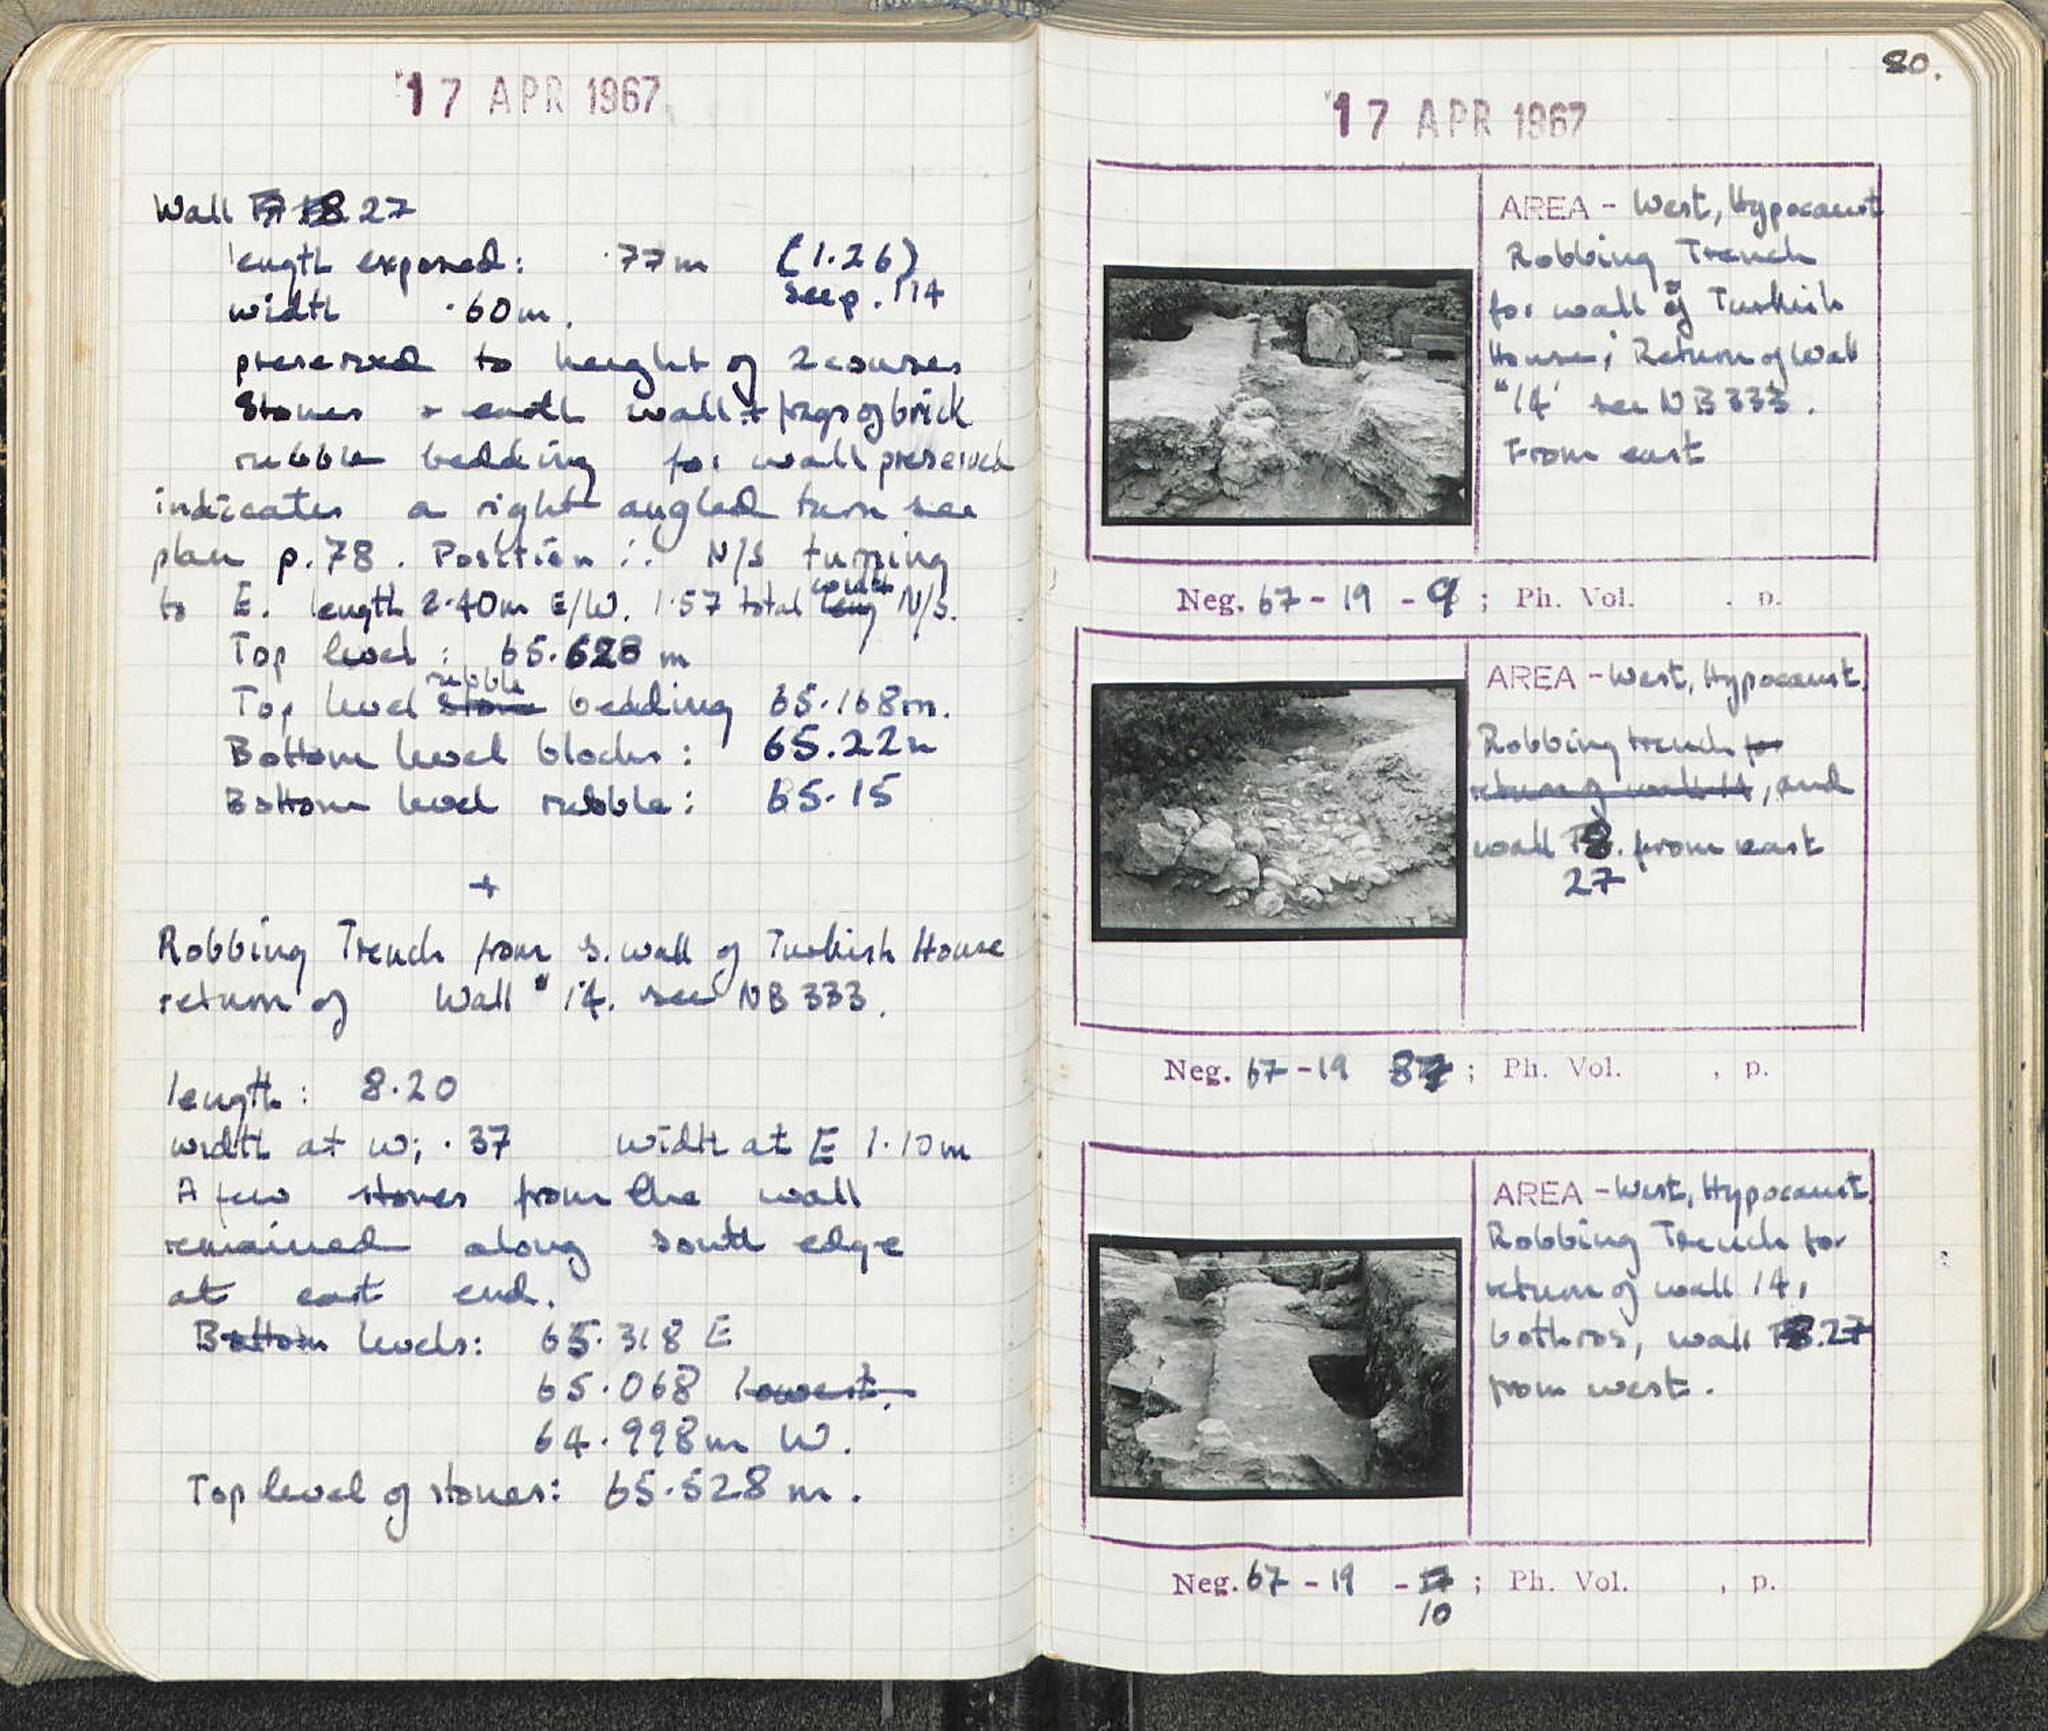 17 APR 1967
Wall 27
length exposed: .77m (1.26)
width .60m. see p. 114
preserved to height of 2 courses
Stones + earth wall + frags of brick
rubble bedding for wall preserved
indicates a right angled turn see
plan p. 78. Position ∴ N/S turning
to E. length 2.40m E/W. 1.57 total width N/S.
Top level: 65.628 m
Top level stone rubble bedding 65.168m.
Bottom level blocks: 65.22m
Bottom level rubble: 65.15
+
Robbing Trench from S. wall of Turkish House
return of Wall "14. see NB 333.
length: 8.20
width at W; .37 width at E 1.10m
A few stones from the wall
remained along south edge
at east end.
Bottom levels: 65.318 E
65.068 lowest.
64.998m W.
Top level of stones: 65.528 m.
80.
17 APR 1967
AREA - West, Hypocaust
Robbing Trench
for wall of Turkish
House; Return of Wall
"14' see NB 333.
From east
Neg. 67-19-9; Ph. Vol. , p.
AREA - West, Hypocaust.
Robbing trench for
return of wall 14, and
wall from east
27
Neg. 67-19 8; Ph. Vol. , p.
AREA - West, Hypocaust.
Robbing Trench for
return of wall 14,
bothros, wall 27
from west.
Neg. 67-19 - ; Ph. Vol. , p.
10